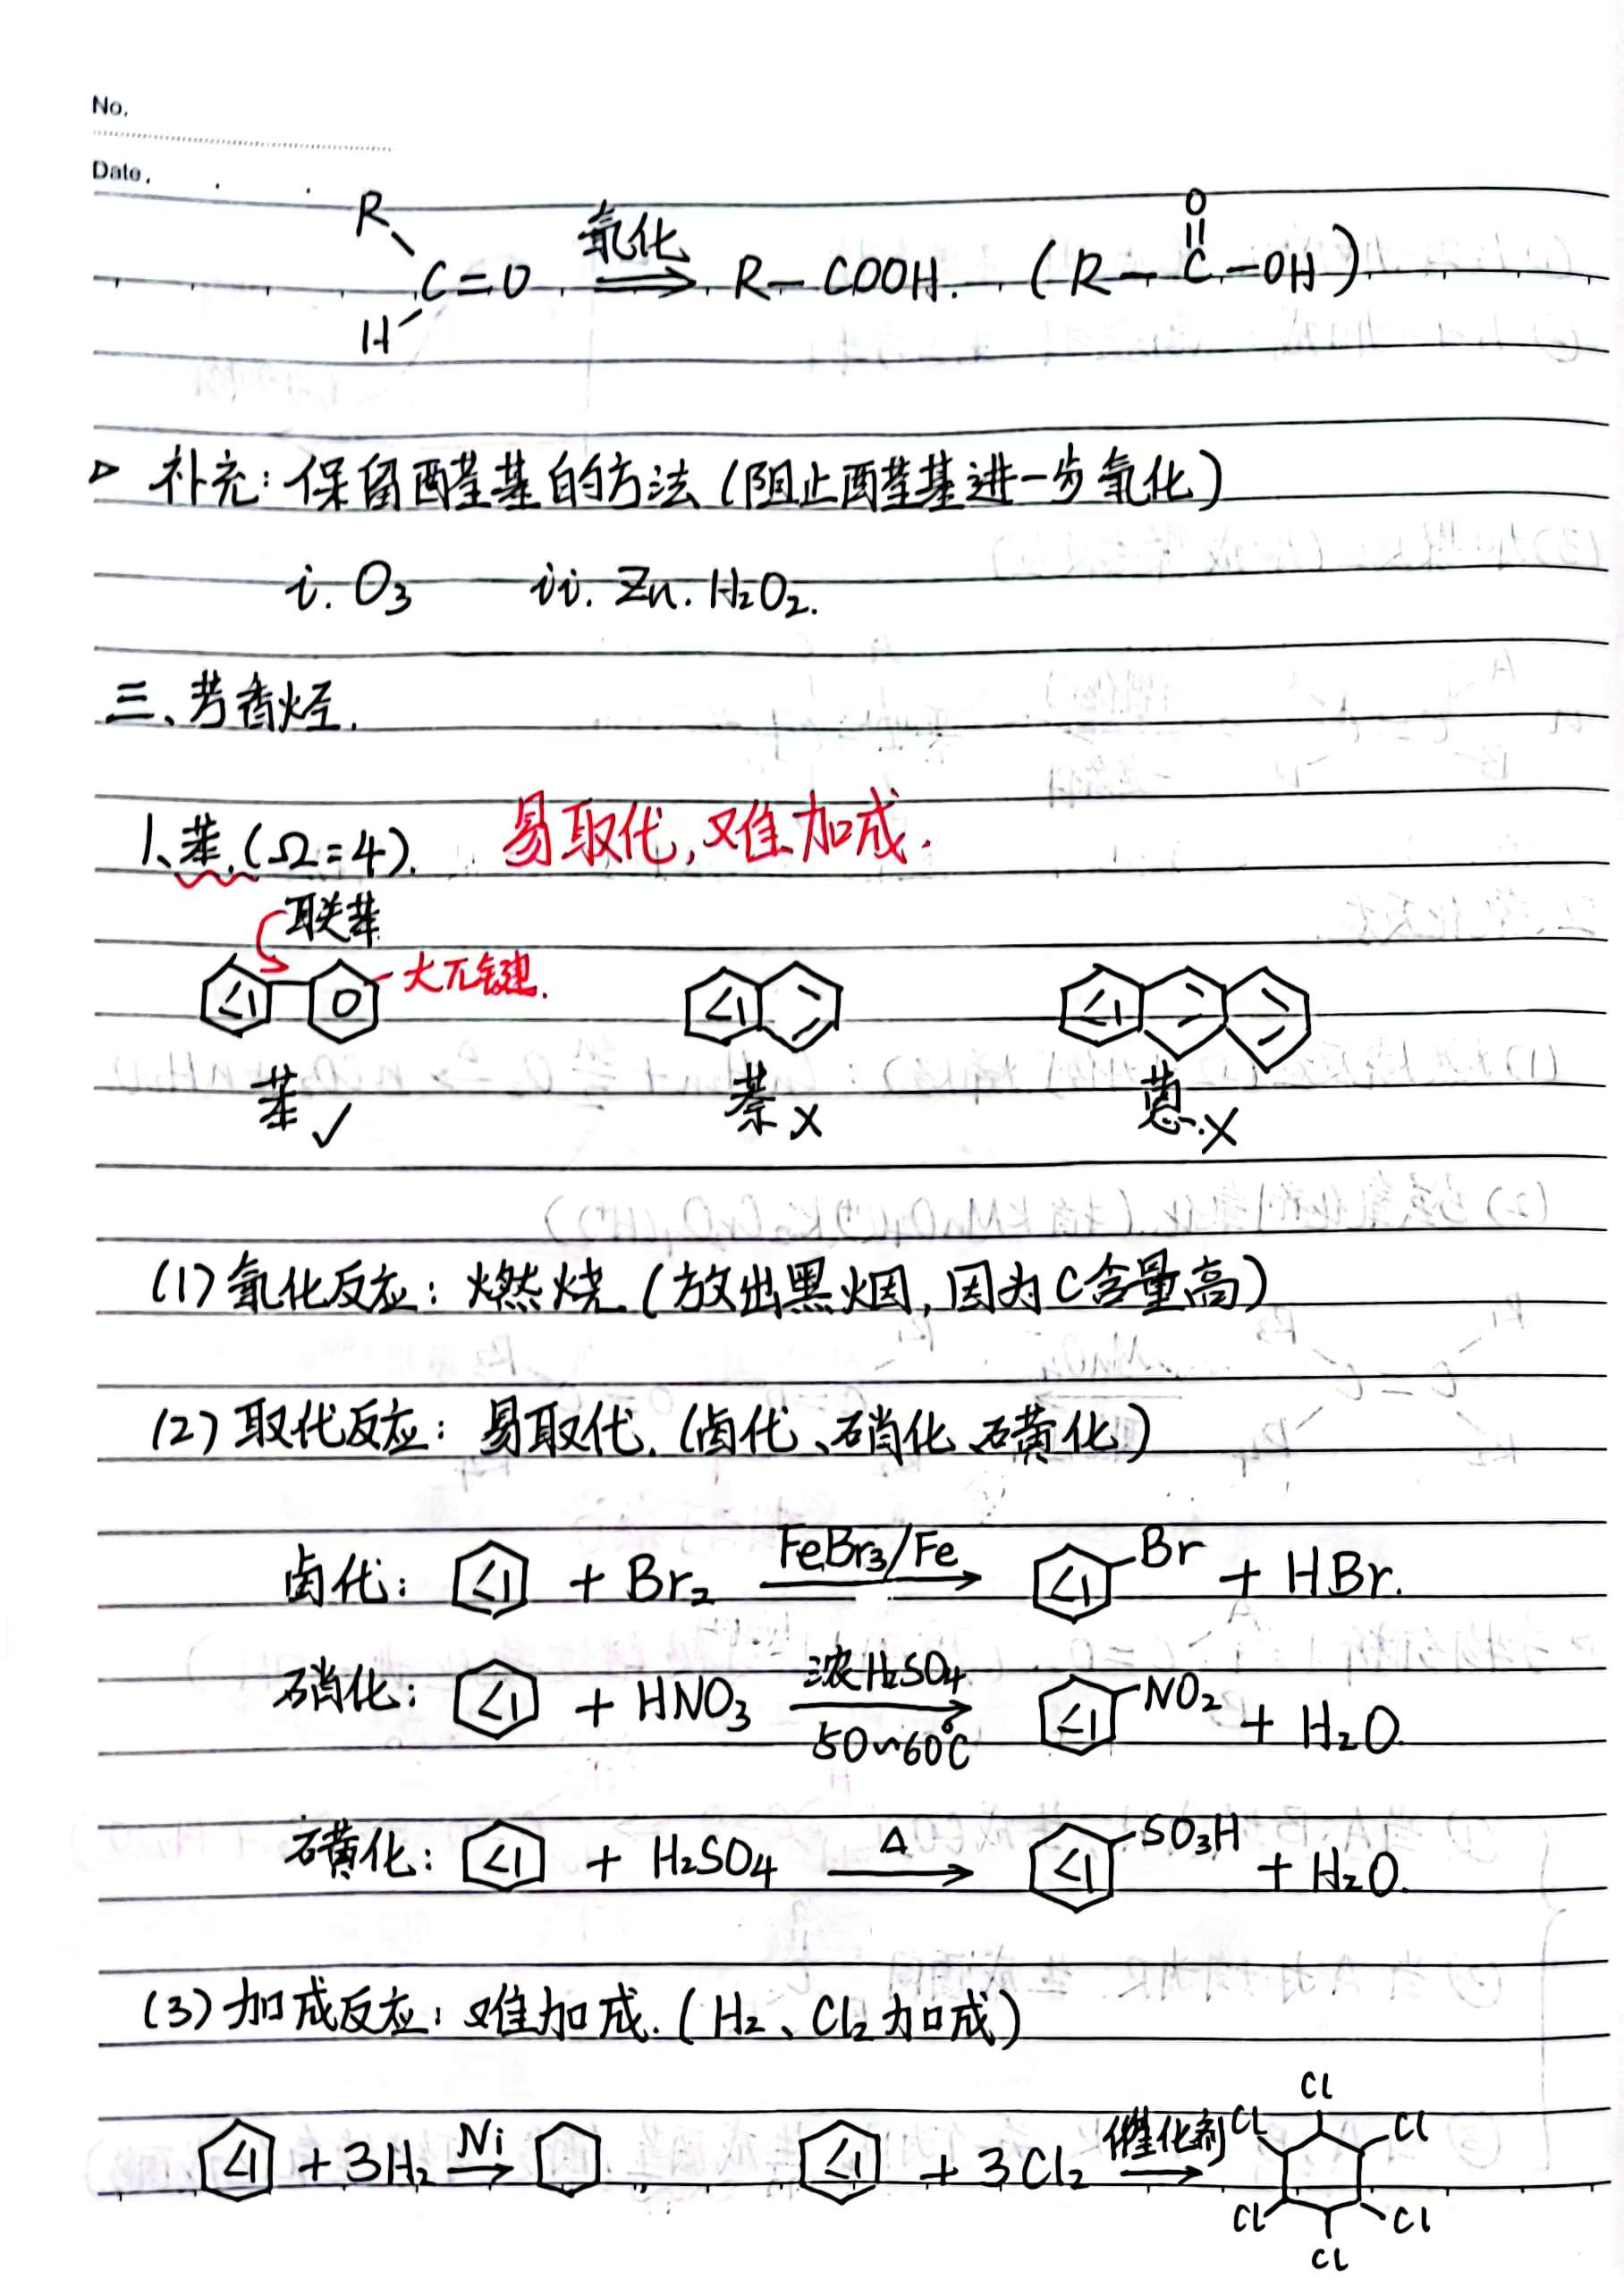 No.
Date.
R H C=O 氧化 R-COOH. (R-C-OH) O
▷ 补充:保留醛基的方法(阻止醛基进一步氧化)
i. O₃ ii. Zn. H₂O₂.
三、芳香烃.
1、苯.(Ω=4). 易取代,难加成.
联苯
大π键.
苯✓ 萘× 蒽.×
(1)氧化反应:燃烧.(放出黑烟,因为C含量高)
(2)取代反应:易取代.(卤代、硝化、磺化)
卤代: + Br₂ FeBr₃/Fe Br + HBr.
硝化: + HNO₃ 浓H₂SO₄ 50~60℃ NO₂ + H₂O.
磺化: + H₂SO₄ Δ SO₃H + H₂O.
(3)加成反应:难加成.(H₂、Cl₂加成)
+ 3H₂ Ni + 3Cl₂ 催化剂 Cl Cl Cl Cl Cl Cl